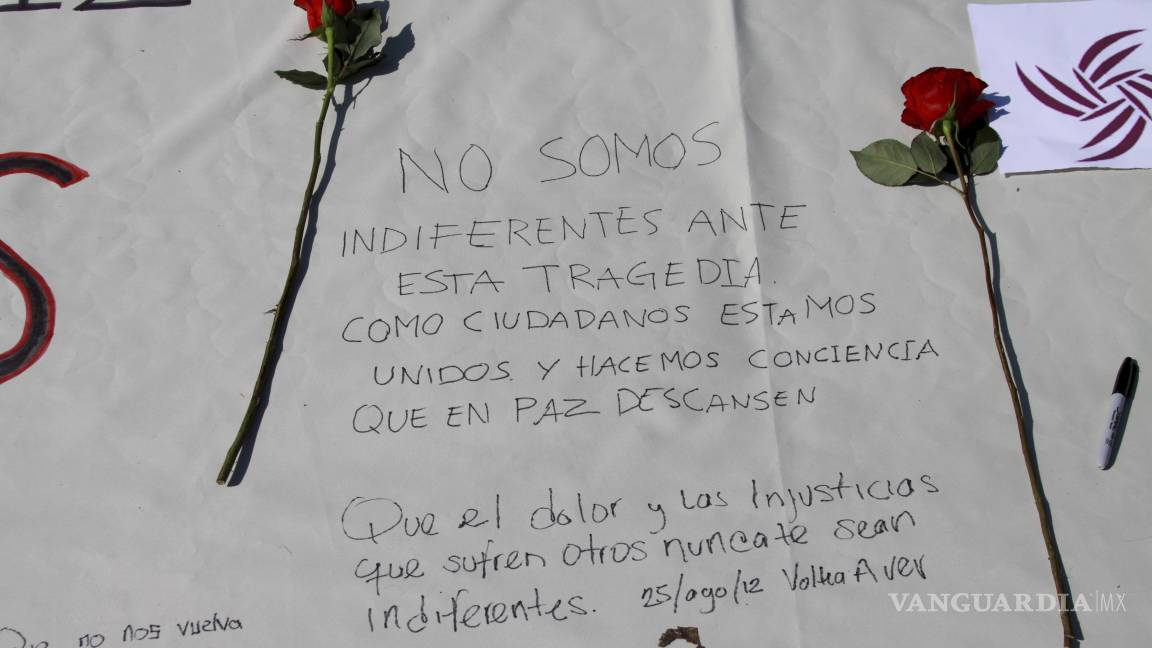 NO SOMOS
INDIFERENTES ANTE
ESTA TRAGEDIA.
COMO CIUDADANOS ESTAMOS
UNIDOS. Y HACEMOS CONCIENCIA
QUE EN PAZ DESCANSEN
Que el dolor y las Injusticias
que sufren otros nunca te sean
Indiferentes. 25/ago/12 Voltea A ver
Que no nos vuelva
S
VANGUARDIA|MX